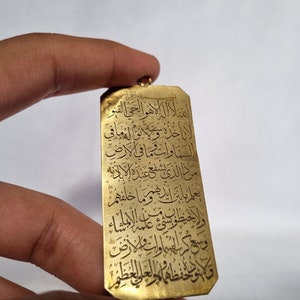 الله لا اله الا هو الحي القيوم
لا تأخذه سنة ولا نوم له ما في
السماوات وما في الارض
من ذا الذي يشفع عنده الا باذنه
يعلم ما بين ايديهم وما خلفهم
ولا يحيطون بشيء من علمه الا بما شاء
وسع كرسيه السماوات والارض
ولا يؤده حفظهما وهو العلي العظيم